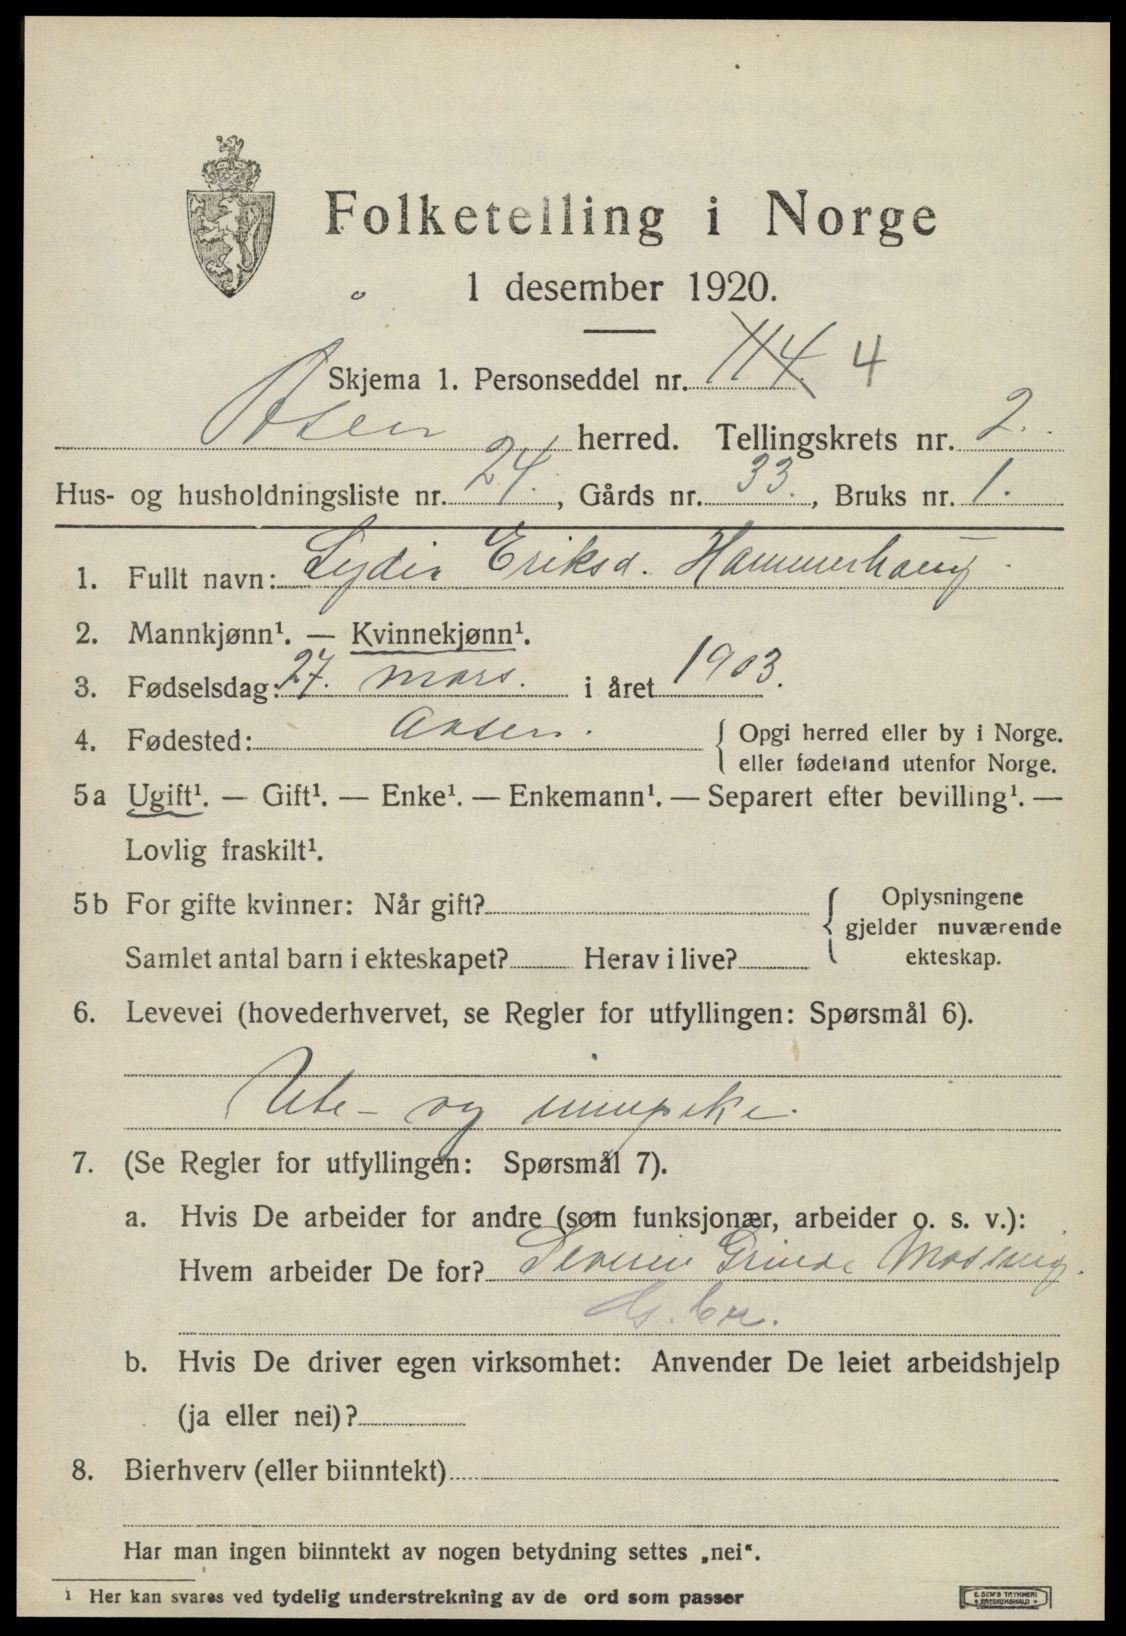 Folketelling i Norge
1 desember 1920.
Skjema 1. Personseddel nr. 114. 4
Åsen herred. Tellingskrets nr. 2.
Hus- og husholdningsliste nr. 24., Gårds nr. 33., Bruks nr. 1.
1. Fullt navn: Lydia Eriksd. Hammerhaug
2. Mannkjønn¹. — Kvinnekjønn¹.
3. Fødselsdag: 27. mars. i året 1903.
4. Fødested: Aasen. { Opgi herred eller by i Norge.
eller fødeland utenfor Norge.
5a Ugift¹. — Gift¹. — Enke¹. — Enkemann¹. — Separert efter bevilling¹. —
Lovlig fraskilt¹.
5b For gifte kvinner: Når gift? { Oplysningene
gjelder nuværende
Samlet antal barn i ekteskapet? Herav i live? ekteskap.
6. Levevei (hovederhvervet, se Regler for utfyllingen: Spørsmål 6).
Ute- og innepike.
7. (Se Regler for utfyllingen: Spørsmål 7).
a. Hvis De arbeider for andre (som funksjonær, arbeider o. s. v.):
Hvem arbeider De for? Severin Grinde
b. Hvis De driver egen virksomhet: Anvender De leiet arbeidshjelp
(ja eller nei)?
8. Bierhverv (eller biinntekt)
Har man ingen biinntekt av nogen betydning settes „nei“.
1 Her kan svares ved tydelig understrekning av de ord som passer